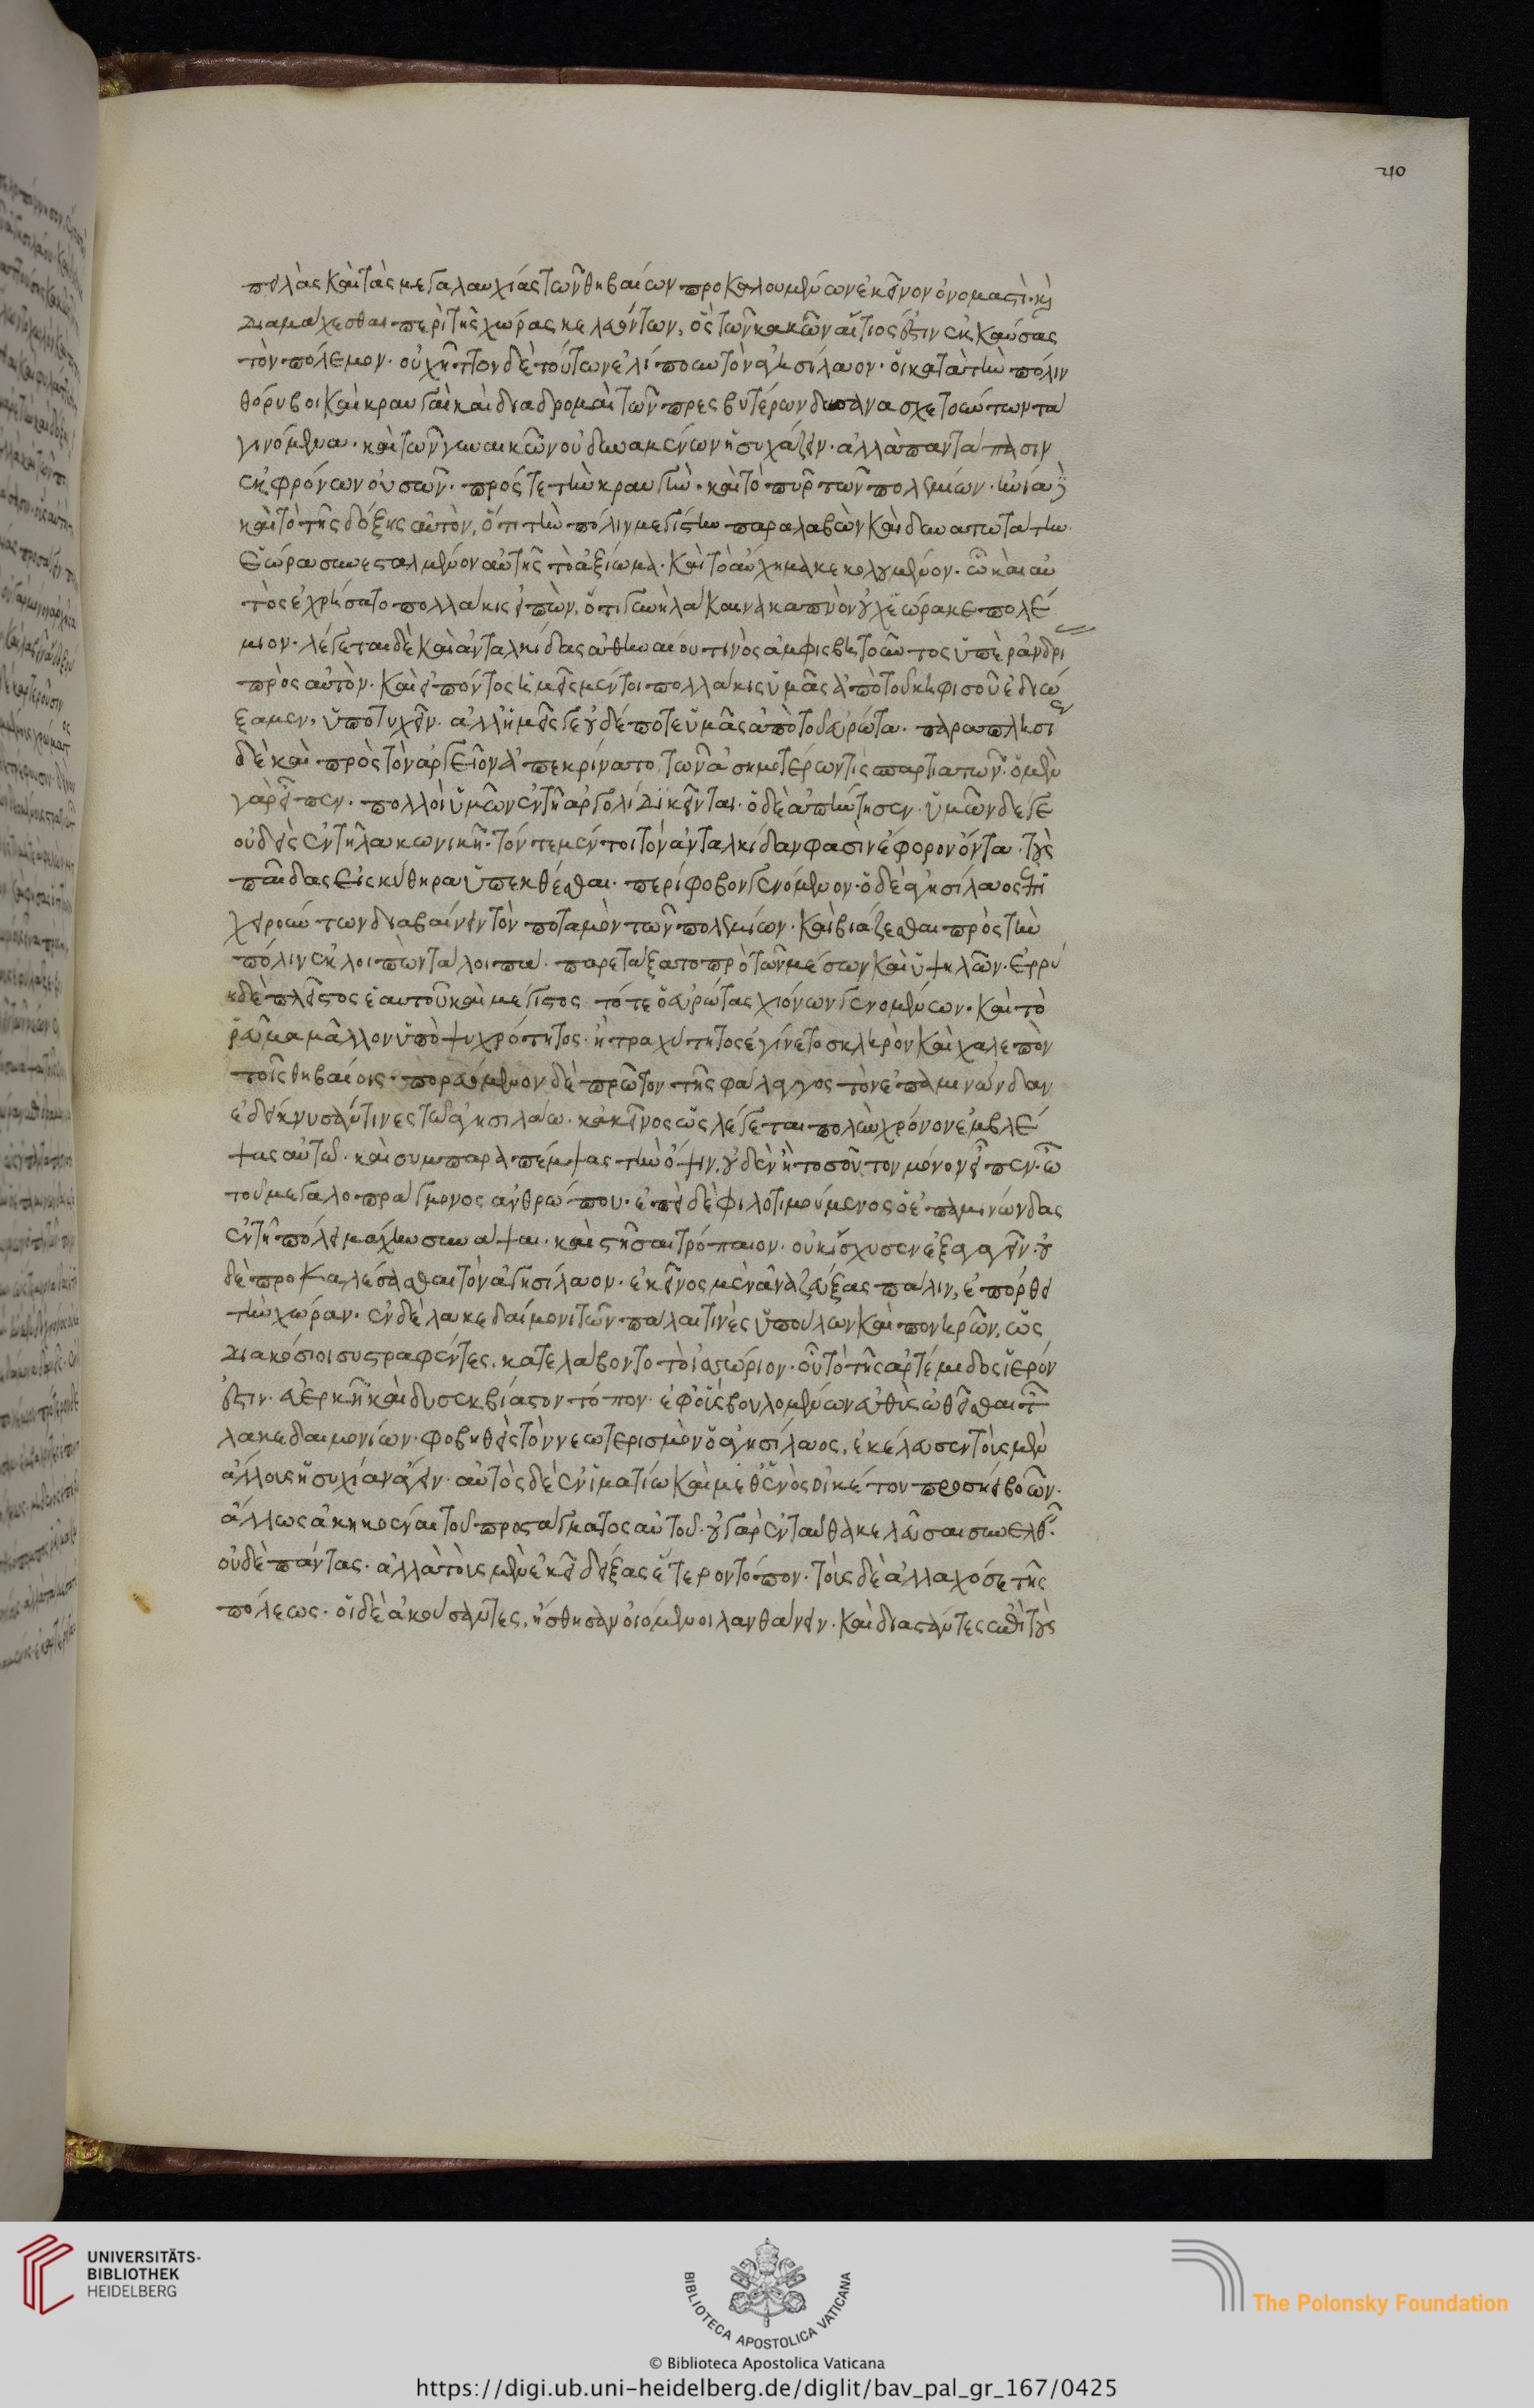 210
πειλὰς καὶ τὰς μεγαλαυχίας τῶν θηβαίων προκαλουμένων ἐκεῖνον ὀνομαστὶ. καὶ
διαμάχεσθαι περὶ τῆς χώρας κελευόντων, ὃς τῶν κακῶν αἴτιός ἐστιν ἐκκαύσας
τὸν πόλεμον. οὐχ ἧττον δὲ τούτων ἐλύπουν τὸν ἀγησίλαον. οἱ κατὰ τὴν πόλιν
θόρυβοι καὶ κραυγαὶ καὶ διαδρομαὶ τῶν πρεσβυτέρων δυσανασχετούντων τὰ
γινόμενα. καὶ τῶν γυναικῶν οὐ δυναμένων ἡσυχάζειν. ἀλλὰ παντάπασιν
ἐκφρόνων οὐσῶν. πρός τε τὴν κραυγὴν. καὶ τὸ πῦρ τῶν πολεμίων. ἠνία δὲ
καὶ τὸ τῆς δόξης αὐτὸν, ὅτι τὴν πόλιν μεγίστην παραλαβὼν καὶ δυνατωτάτην.
ἑώρα συνεσταλμένον αὐτῆς τὸ ἀξίωμα. καὶ τὸ αὔχημα κεκολουμένον. ᾧ καὶ αὐ
τὸς ἐχρήσατο πολλάκις εἰπὼν, ὅτι γυνὴ λάκαινα καπνὸν οὐχ ἑώρακε πολέ
μιον. λέγεται δὲ καὶ ἀνταλκίδας ἀθηναίου τινὸς ἀμφισβητοῦντος ὑπὲρ ἀνδρί
πρὸς αὐτὸν. καὶ εἰπόντος ἡμεῖς μέντοι πολλάκις ὑμᾶς ἀπὸ τοῦ κηφισοῦ ἐδιώ
ξαμεν, ὑποτυχεῖν. ἀλλ' ἡμεῖς γε οὐδέποτε ὑμᾶς ἀπὸ τοῦ εὐρώτα. παραπλησί
δὲ καὶ πρὸς τὸν ἀργεῖον ἀπεκρίνατο τῶν ἀσημοτέρων τὶς σπαρτιατῶν. ὁ μὲν
γὰρ εἶπεν. πολλοὶ ὑμῶν ἐν τῇ ἀργολίδι κεῖνται. ὁ δὲ ἀπήντησεν. ὑμῶν δέ γε
οὐδεὶς ἐν τῇ λακωνικῇ. τόν τε μέντοι τὸν ἀνταλκίδαν φασὶν ἔφορον ὄντα. τοὺς
παῖδας εἰς κύθηρα ὑπεκθέσθαι. περίφοβον γενόμενον. ὁ δὲ ἀγησίλαος ἐπι
χειρούντων διαβαίνειν τὸν ποταμὸν τῶν πολεμίων. καὶ βιάζεσθαι πρὸς τὴν
πόλιν ἐκλοιπὼν τὰ λοιπὰ. παρετάξατο πρὸ τῶν μέσων καὶ ὑψηλῶν. ἐρρύ
η δὲ πλεῖστος ἑαυτοῦ καὶ μέγιστος τότε ὁ εὐρώτας χιόνων γενομένων. καὶ τὸ
ῥεῦμα μᾶλλον ὑπὸ ψυχρότητος. ἢ τραχύτητος ἐγίνετο σκληρὸν καὶ χαλεπὸν
τοῖς θηβαίοις. πορευόμενον δὲ πρῶτον τῆς φάλαγγος τὸν ἐπαμινώνδαν
ἐδείκνυσάν τινες τῷ ἀγησιλάω. κἀκεῖνος ὡς λέγεται πολὺν χρόνον ἐμβλέ
ψας αὐτῷ. καὶ συμπαραπέμψας τὴν ὄψιν, οὐδὲν ἢ τοσοῦτον μόνον εἶπεν. ὦ
τοῦ μεγαλοπράγμονος ἀνθρώπου. ἐπεὶ δὲ φιλοτιμούμενος ὁ ἐπαμινώνδας
ἐν τῇ πόλει μάχην συνάψαι. καὶ στῆσαι τρόπαιον. οὐκ ἴσχυσεν ἐξαγαγεῖν. οὐ
δὲ προκαλέσασθαι τὸν ἀγησίλαον. ἐκεῖνος μὲν ἀναζεύξας πάλιν, ἐπόρθει
τὴν χώραν. ἐν δὲ λακεδαίμονι τῶν πάλαι τινὲς ὑπούλων καὶ πονηρῶν, ὡς
διακόσιοι συστραφέντες, κατελάβοντο τὸ ἰσσώριον. οὗ τὸ τῆς ἀρτέμιδος ἱερόν
ἐστιν. εὐερκῆ καὶ δυσεκβίαστον τόπον. ἐφ' οἷς βουλομένων εὐθὺς ὠθεῖσθαι τῶν
λακεδαιμονίων. φοβηθεὶς τὸν νεωτερισμὸν ὁ ἀγησίλαος, ἐκέλευσεν τοὺς μὲν
ἄλλους ἡσυχίαν ἄγειν. αὐτὸς δὲ ἐν ἱματίω καὶ μεθ' ἑνὸς οἰκέτου προσήει βοῶν.
ἄλλως ἀκηκοέναι τοῦ προστάγματος αὐτοῦ. οὐ γὰρ ἐνταῦθα κελεῦσαι συνελθεῖν.
οὐδὲ πάντας. ἀλλὰ τοὺς μὲν ἐκεῖ δείξας ἕτερον τόπον. τοὺς δὲ ἀλλαχόσε τῆς
πόλεως. οἱ δὲ ἀκούσαντες, ἥσθησαν οἰόμενοι λανθάνειν. καὶ διαστάντες ἐπὶ τοὺς
UNIVERSITÄTS-
BIBLIOTHEK
HEIDELBERG
BIBLIOTECA APOSTOLICA VATICANA
The Polonsky Foundation
© Biblioteca Apostolica Vaticana
https://digi.ub.uni-heidelberg.de/diglit/bav_pal_gr_167/0425